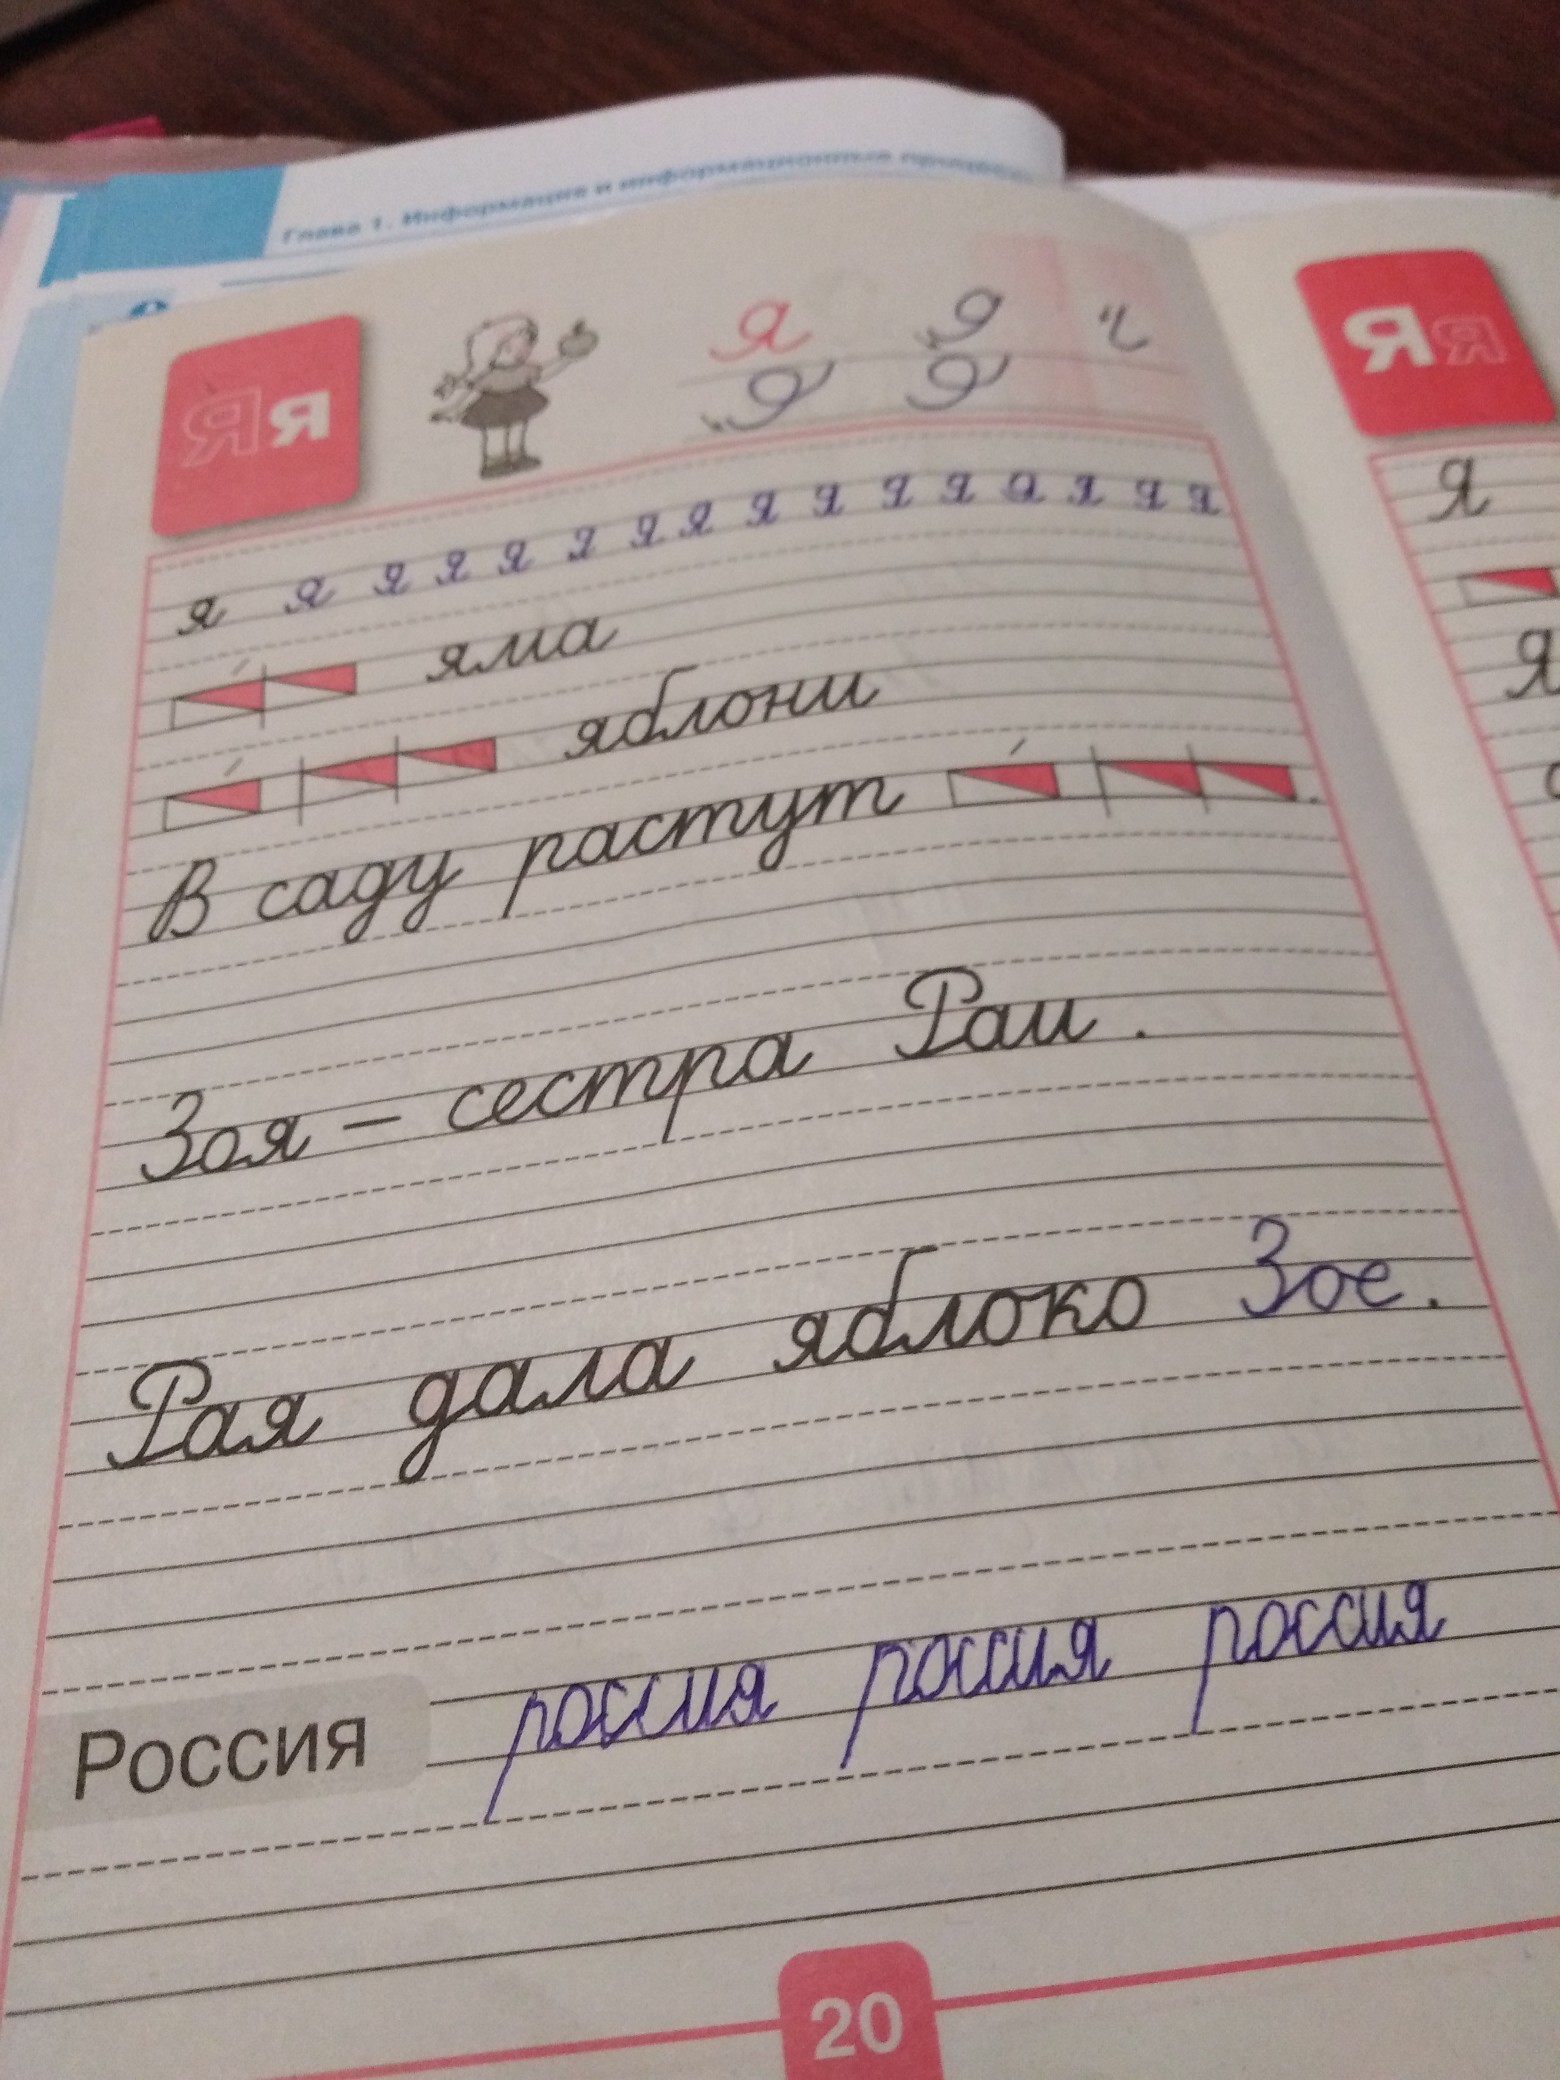 Глава 1. Информация и информационные процессы
Я я
я я ч
Я я
я я
я я я я я я я я я я я я я я я
Я
яма
яблони
Я
В саду растут .
Зоя – сестра Раи.
Рая дала яблоко Зое.
Россия россия россия россия
20